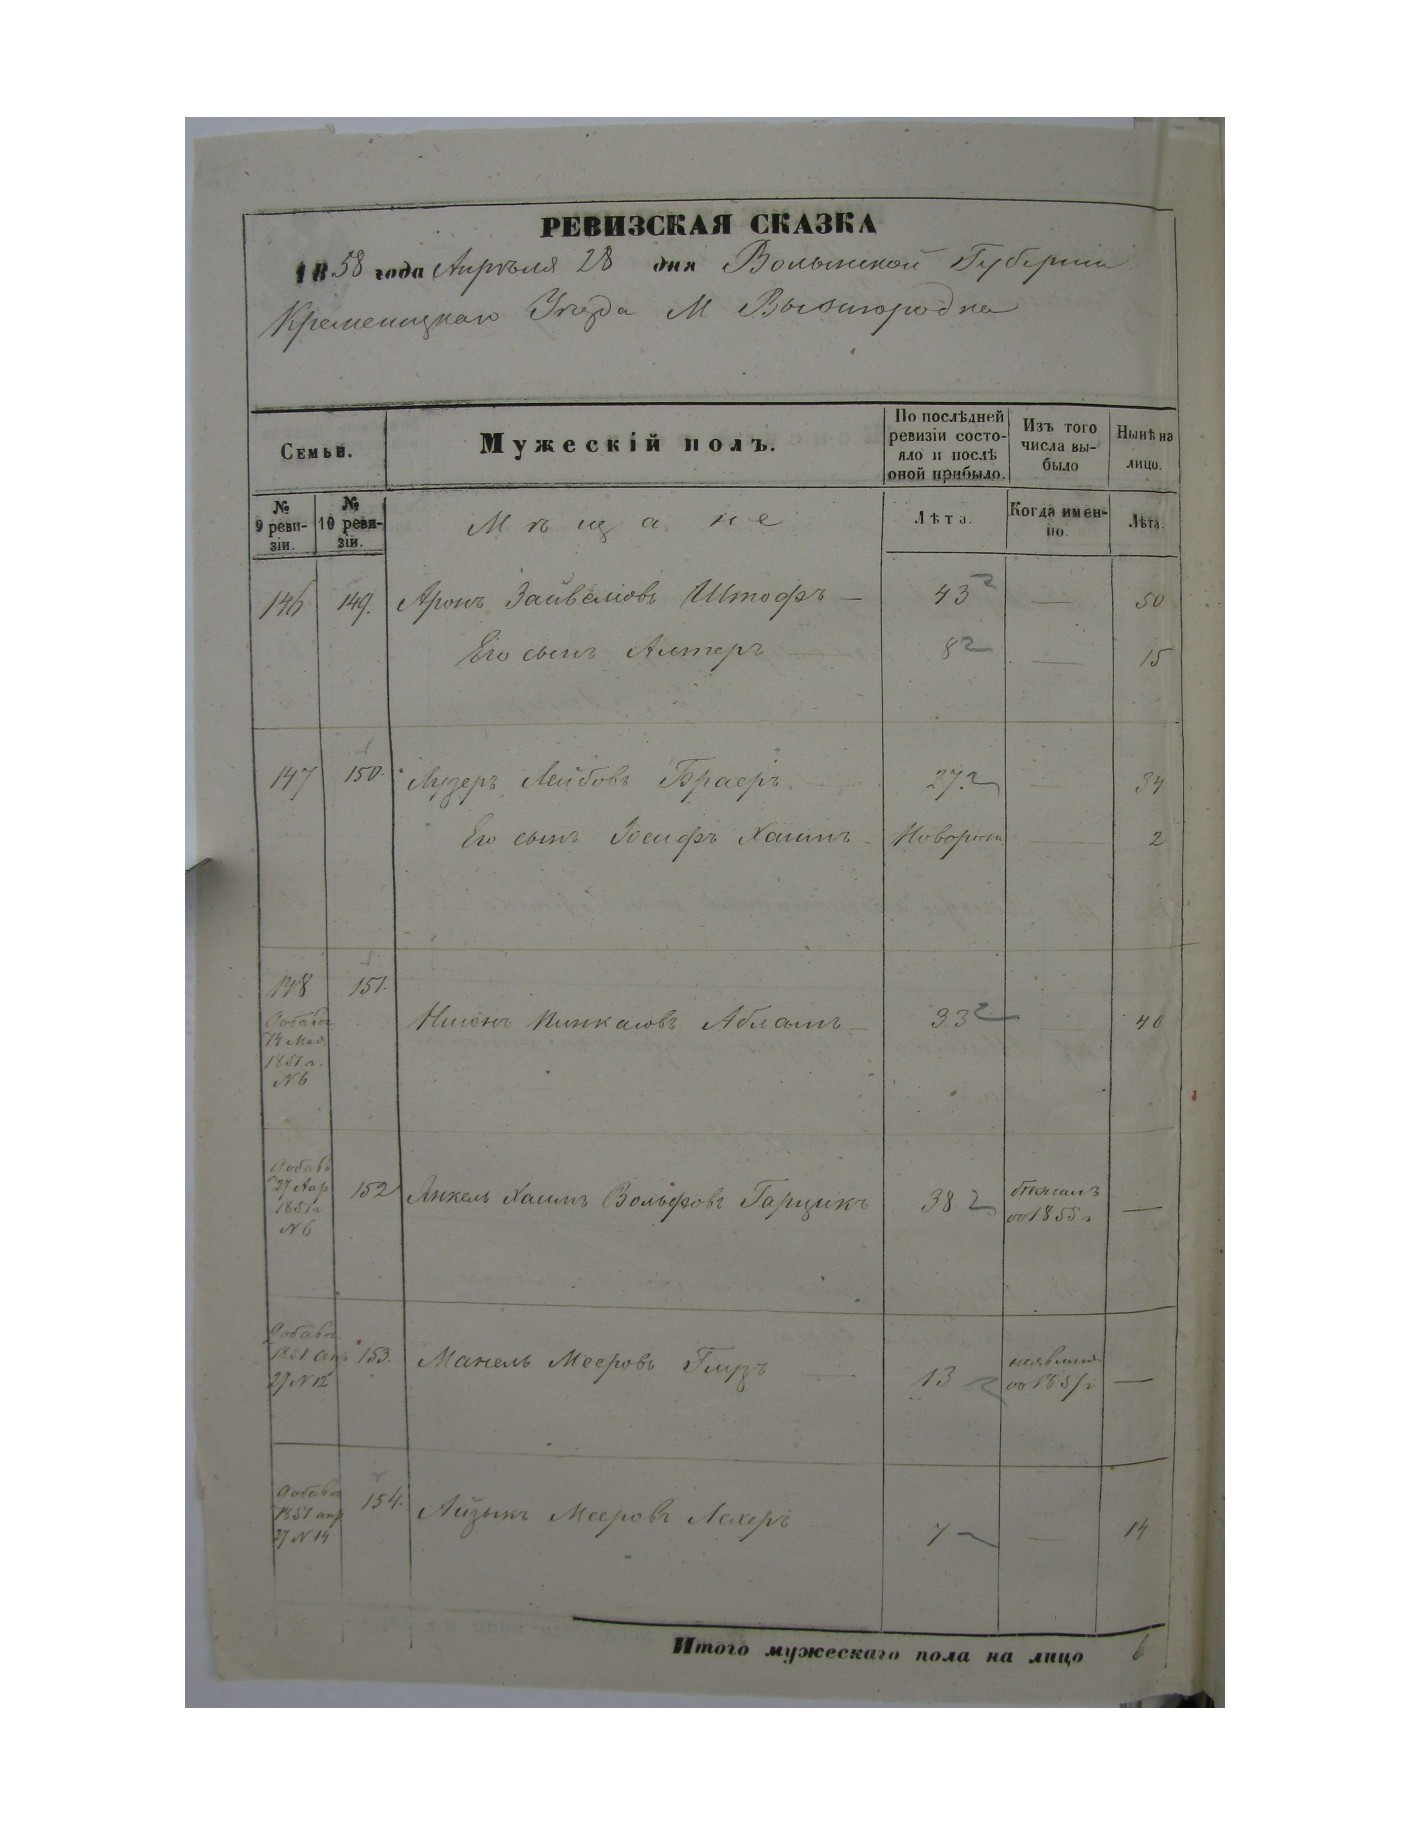 РЕВИЗСКАЯ СКАЗКА
1858 года Апрѣля 28 дня Волынской Губерніи
Кременецкаго Уѣзда М Вышгородка
Семьи.
Мужескій полъ.
По послѣдней ревизіи состояло и послѣ оной прибыло.
Изъ того числа выбыло
Нынѣ на лицо.
№ 9 ревизіи.
№ 10 ревизіи.
Мѣщане
Лѣта.
Когда именно.
Лѣта.
146 149. Аронъ Зайвеловъ Штофъ — 43 — 50
Его сынъ Алтеръ — 8 — 15
147 150. Лузеръ Лейбовъ Браеръ — 27 — 34
Его сынъ Іосифъ Хаимъ Новорож — 2
148 151.
Добавоч
1851 г.
№ 6
Пинкасовъ Абламъ — 33 — 40
Добавоч
27 Апр
1851 г
№ 6
152 Янкель Хаимъ Вольфовъ Гарцикъ 38 бѣжалъ
въ 1855 г —
Добавоч
1851 апр
27 № 12
153. Манель Мееровъ Глузъ — 13 неявился
въ 1851 г —
Добавоч
1851 апр
27 № 14
154. Айзыкъ Мееровъ Лехеръ 7 — 14
Итого мужескаго пола на лицо 6